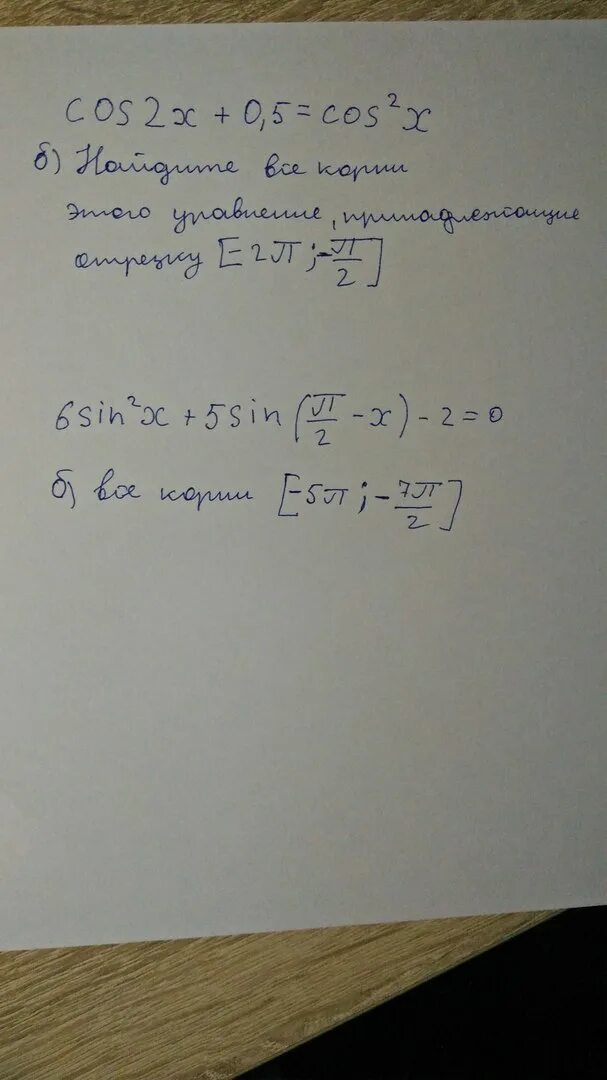 cos2x + 0,5 = cos²x
б) Найдите все корни
этого уравнение, принадлежащие
отрезку [-2π; -π/2]
6sin²x + 5sin(π/2 - x) - 2 = 0
б) все корни [-5π; -7π/2]